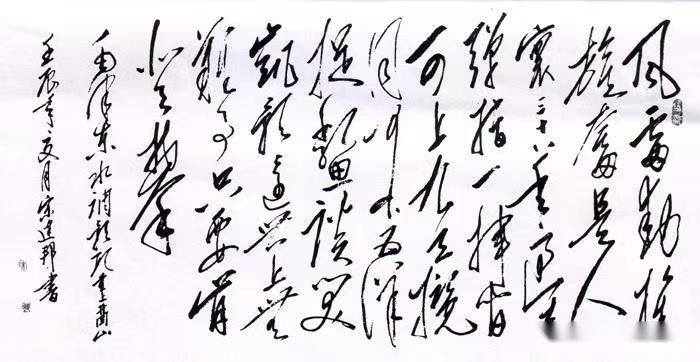 风雷动旌
旗奋是人
寰三十八年过去
弹指一挥间
可上九天揽
月可下五洋
捉鳖谈笑
凯歌还世上无
难事只要肯
登攀
毛泽东水调歌头重上井冈山
壬辰年夏月宋邦书